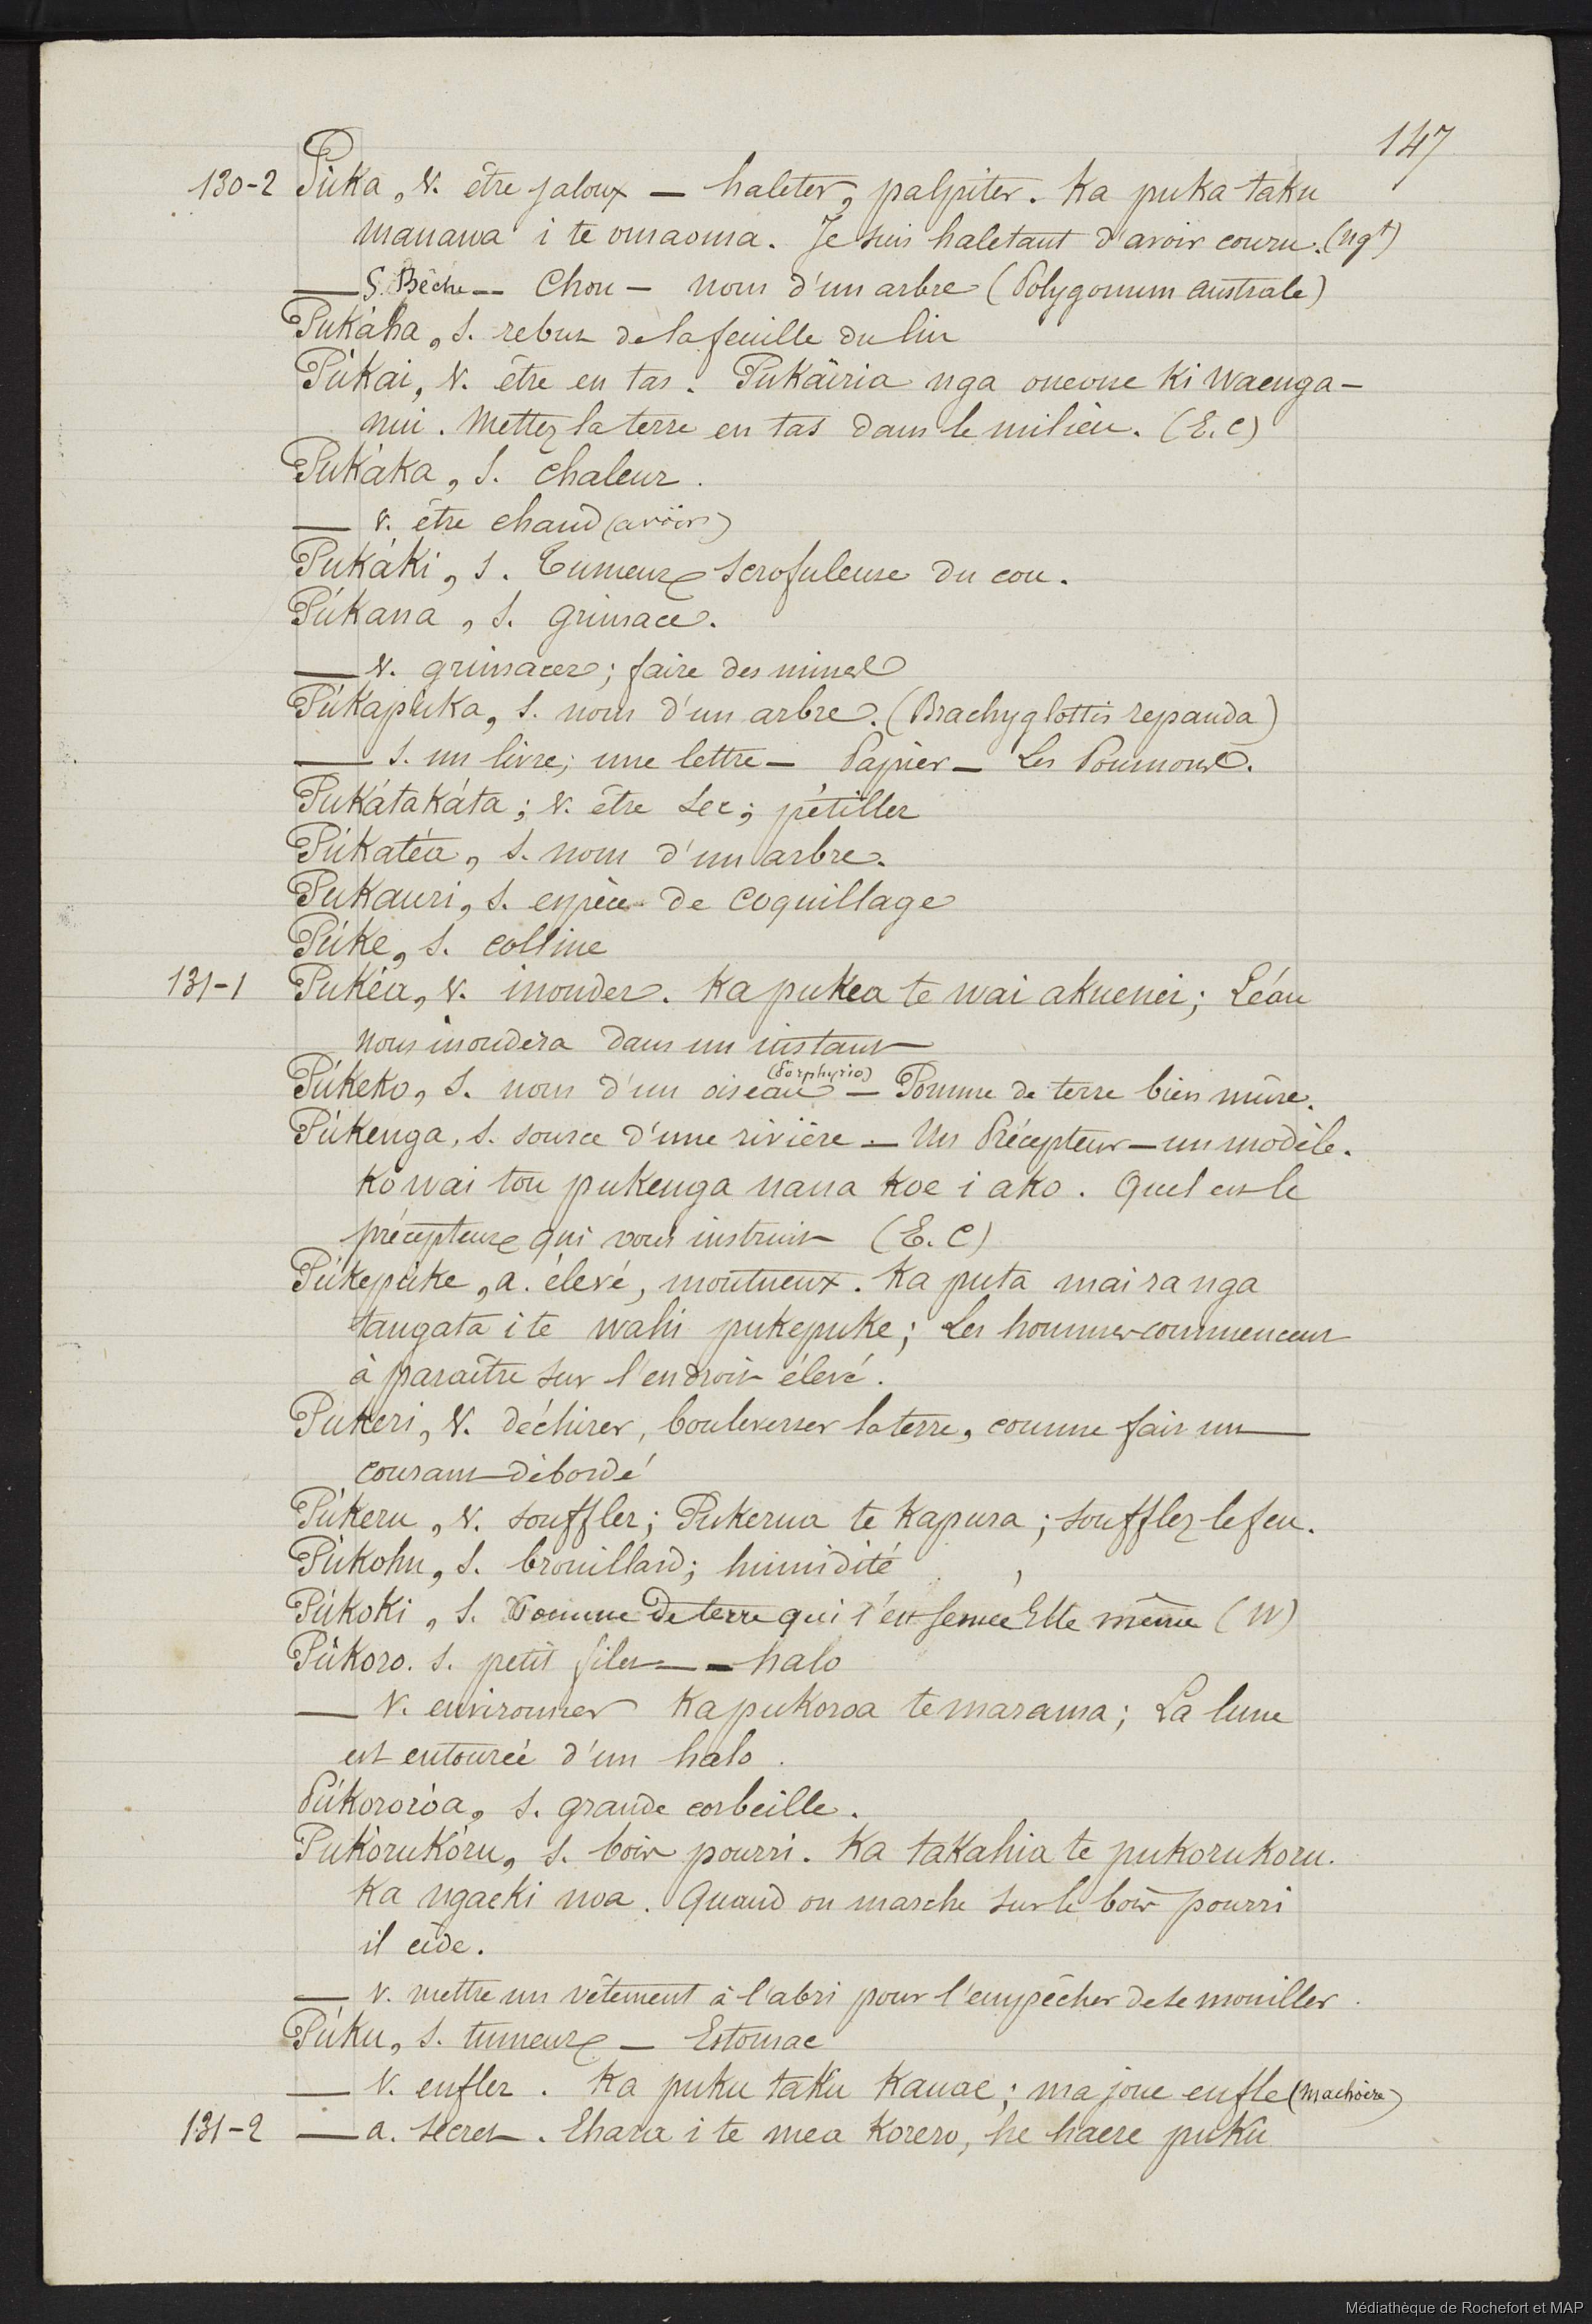 147
130-2 Púka, v. être jaloux — haleter, palpiter. Ka puka taku
manawa i te omaoma. Je suis haletant d'avoir couru. (ngt)
— S. Bêche — Chou — nom d'un arbre (Polygonum australe)
Pukáha, s. rebut de la feuille du lin
Púkai, v. être en tas. Pukáiria nga oneone ki waenga-
nui. Mettez la terre en tas dans le milieu. (E.C)
Pukáka, s. chaleur.
— v. être chaud (avoir)
Pukáki, s. Tumeur scrofuleuse du cou.
Púkana, s. grimace.
— v. grimacer; faire des mines
Púkapúka, s. nom d'un arbre. (Brachyglottis repanda)
— s. un livre; une lettre — Papier — Les Poumons.
Pukátakáta; v. être sec; pétiller
Púkatéa, s. nom d'un arbre.
Pukauri, s. espèce de coquillage
Púke, s. colline
131-1 Pukéa, v. inonder. Ka pukea te wai akuenei; L'eau
nous inondera dans un instant
Púkeko, s. nom d'un oiseau (Porphyrio) — Pomme de terre bien mûre.
Púkenga, s. source d'une rivière — Un Précepteur — un modèle.
Ko wai tou pukenga nana koe i ako. Quel est le
précepteur qui vous instruit (E.C)
Púkepúke, a. élevé, montueux. Ka puta mai ra nga
tangata i te wahi pukepuke; Les hommes commencent
à paraître sur l'endroit élevé.
Pukeri, v. déchirer, bouleverser la terre, comme fait un
courant débordé
Púkeru, v. souffler; Pukerua te kapura; soufflez le feu.
Púkohu, s. brouillard; humidité
Púkoki, s. Pomme de terre qui s'est semée Elle même (W)
Púkoro. s. petit filet — halo
— v. environner Ka pukoroa te marama; La lune
est entourée d'un halo.
Púkororóa, s. grande corbeille.
Pukórukóru, s. bois pourri. Ka takahia te pukorukoru.
Ka ngaeki noa. Quand on marche sur le bois pourri
il cède.
— v. mettre un vêtement à l'abri pour l'empêcher de se mouiller.
Púku, s. tumeur — Estomac
— v. enfler. Ka puku taku kauae; ma joue enfle (machoire)
131-2 — a. secret. Ehara i te mea korero, he haere puku
Médiathèque de Rochefort et MAP